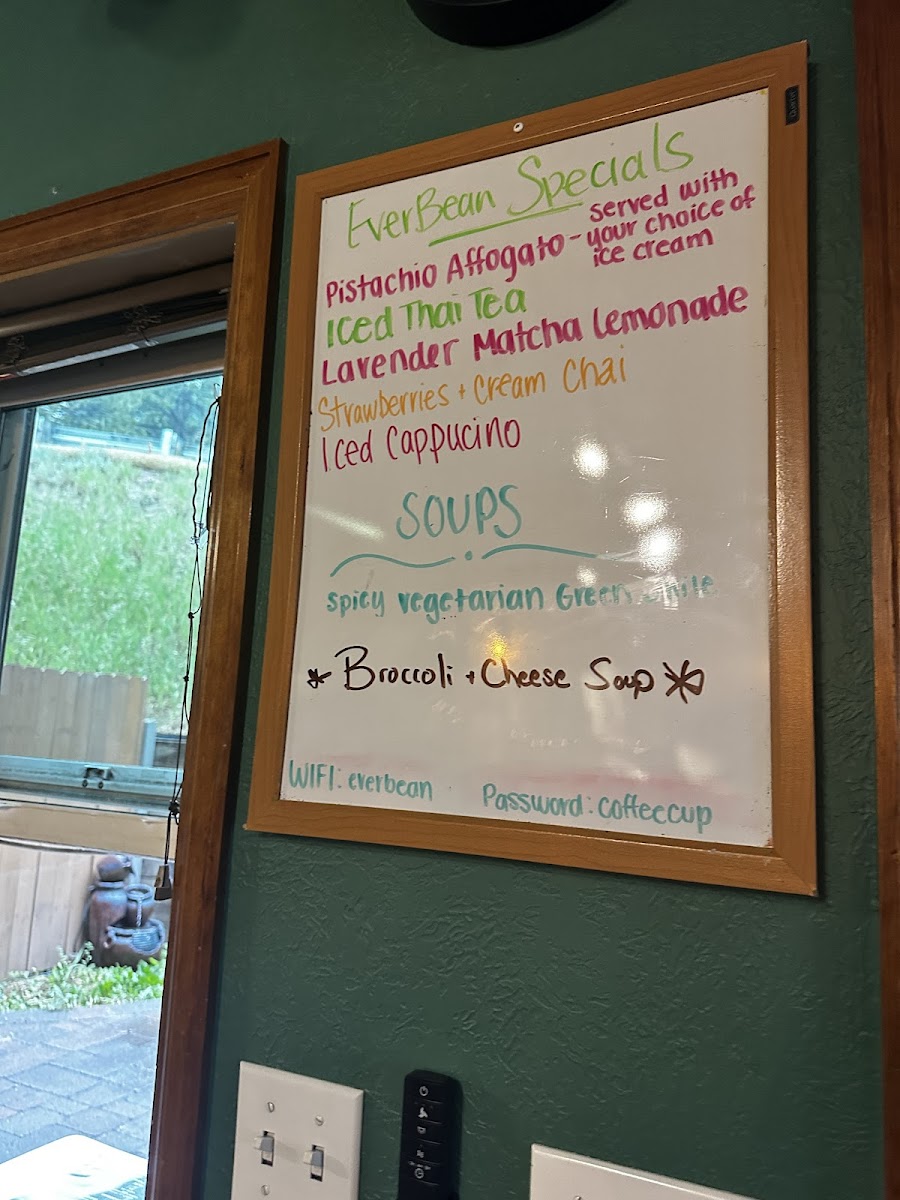 EverBean Specials
Pistachio Affogato - served with
your choice of
ice cream
Iced Thai Tea
Lavender Matcha Lemonade
Strawberries + Cream Chai
Iced Cappucino
SOUPS
spicy vegetarian Green Chile
* Broccoli + Cheese Soup *
WIFI: everbean Password: coffeecup